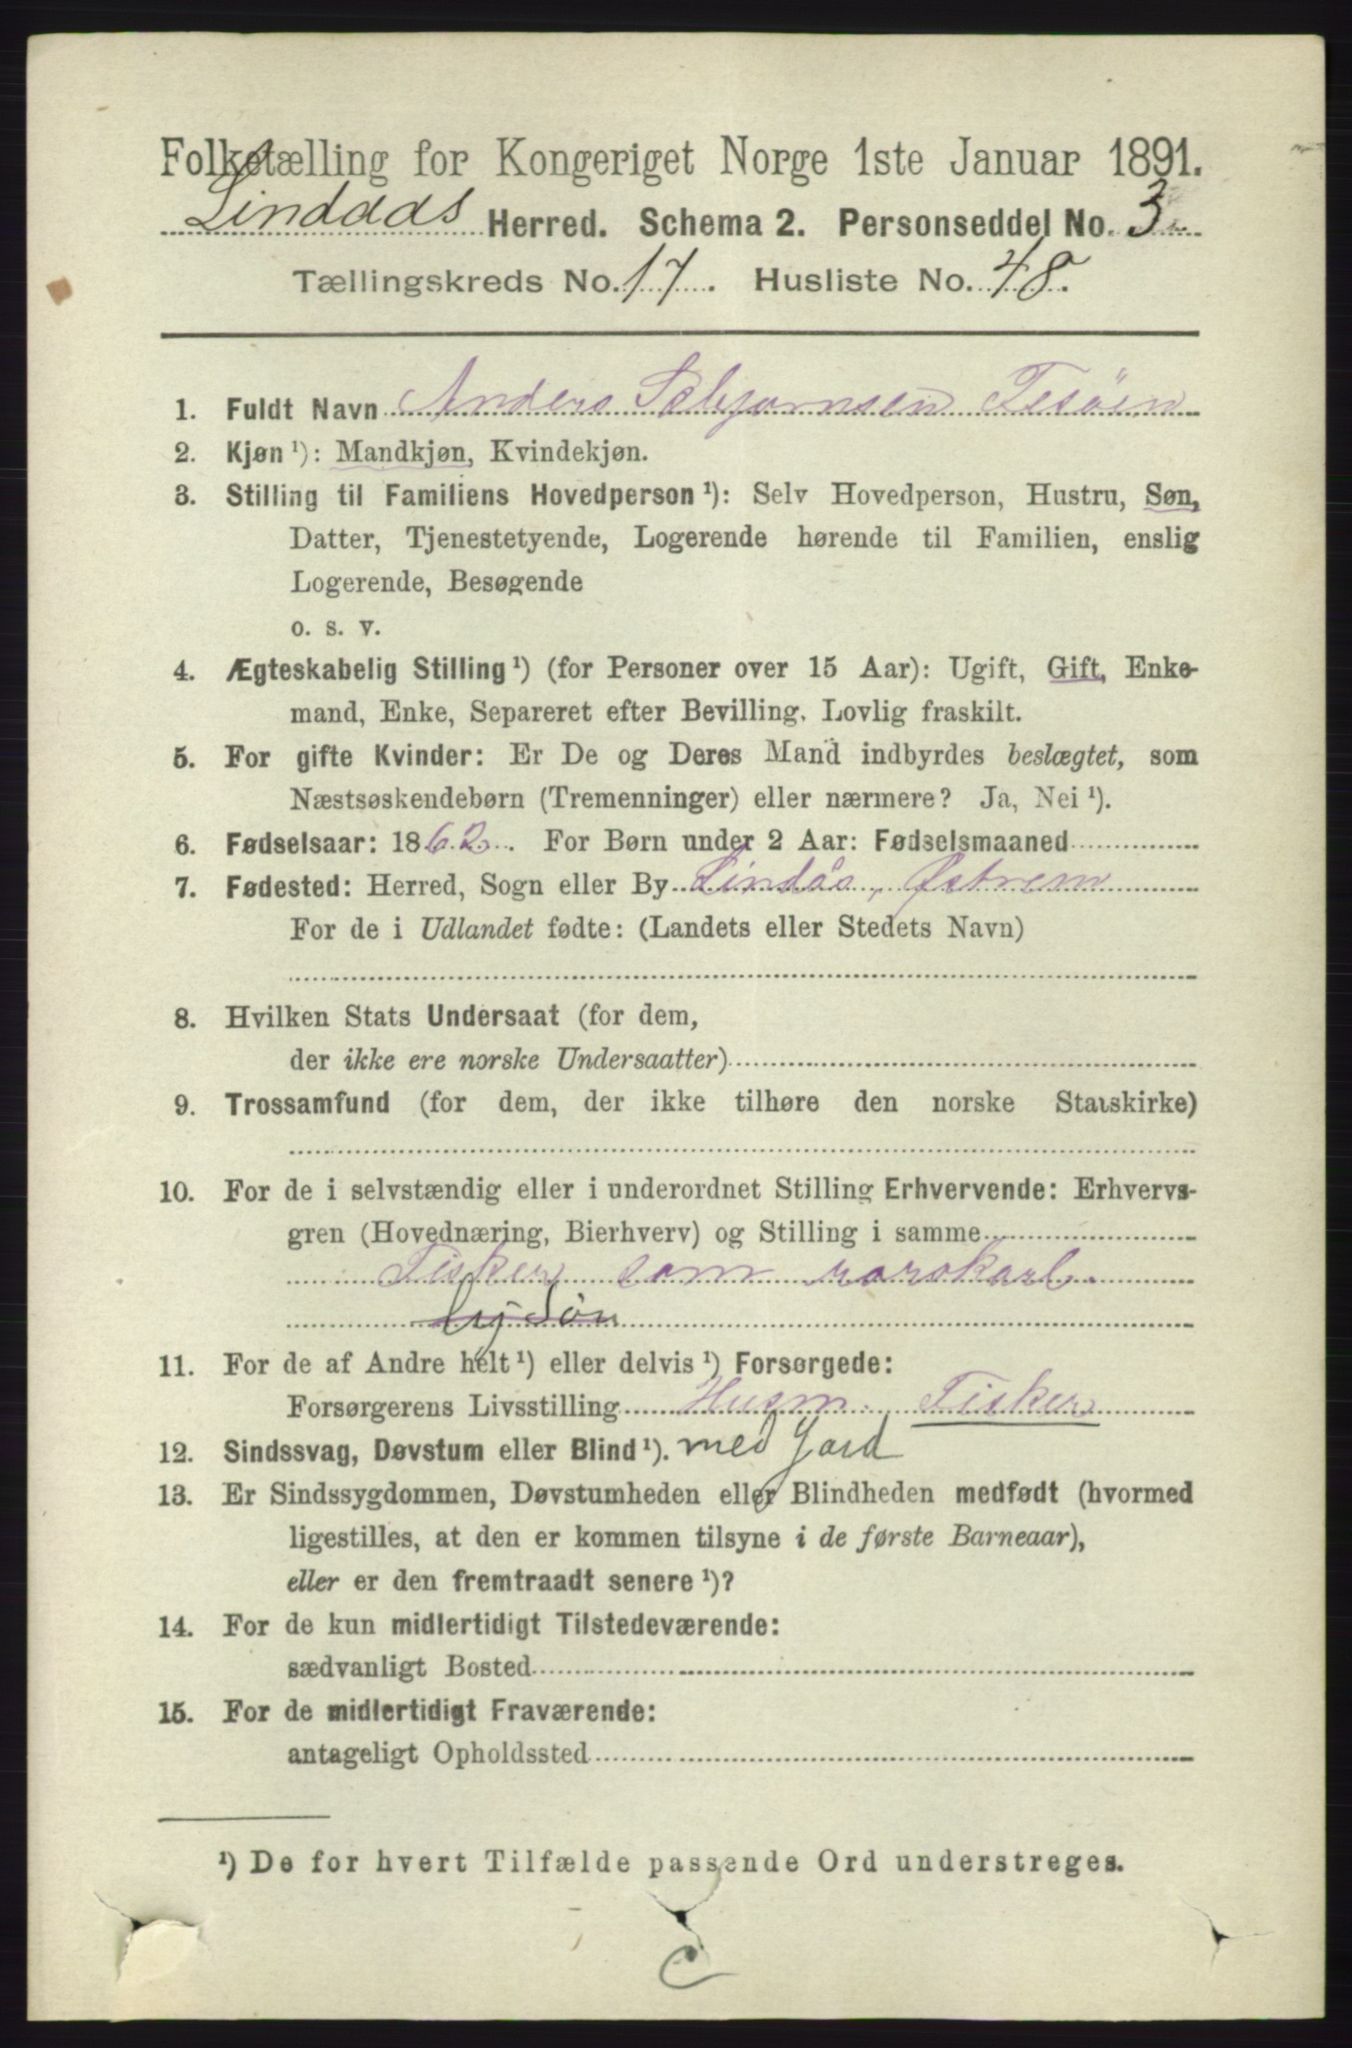 Folketælling for Kongeriget Norge 1ste Januar 1891.
Lindaas Herred. Schema 2. Personseddel No. 3
Tællingskreds No. 17. Husliste No. 48.
1. Fuldt Navn Anders Esbjørnsen Fesöen
2. Kjøn ¹): Mandkjøn, Kvindekjøn.
3. Stilling til Familiens Hovedperson ¹): Selv Hovedperson, Hustru, Søn,
Datter, Tjenestetyende, Logerende hørende til Familien, enslig
Logerende, Besøgende
o. s. v.
4. Ægteskabelig Stilling ¹) (for Personer over 15 Aar): Ugift, Gift, Enke-
mand, Enke, Separeret efter Bevilling. Lovlig fraskilt.
5. For gifte Kvinder: Er De og Deres Mand indbyrdes beslægtet, som
Næstsøskendebørn (Tremenninger) eller nærmere? Ja, Nei ¹).
6. Fødselsaar: 1862. For Børn under 2 Aar: Fødselsmaaned
7. Fødested: Herred, Sogn eller By Lindås, Østrem
For de i Udlandet fødte: (Landets eller Stedets Navn)
8. Hvilken Stats Undersaat (for dem,
der ikke ere norske Undersaatter)
9. Trossamfund (for dem, der ikke tilhøre den norske Statskirke)
10. For de i selvstændig eller i underordnet Stilling Erhvervende: Erhvervs-
gren (Hovednæring, Bierhverv) og Stilling i samme
Fisker som rorskarl.
11. For de af Andre helt ¹) eller delvis ¹) Forsørgede:
Forsørgerens Livsstilling Husm. Fisker
12. Sindssvag, Døvstum eller Blind ¹). med Jord
13. Er Sindssygdommen, Døvstumheden eller Blindheden medfødt (hvormed
ligestilles, at den er kommen tilsyne i de første Barneaar),
eller er den fremtraadt senere ¹)?
14. For de kun midlertidigt Tilstedeværende:
sædvanligt Bosted
15. For de midlertidigt Fraværende:
antageligt Opholdssted
¹) De for hvert Tilfælde passende Ord understreges.
C